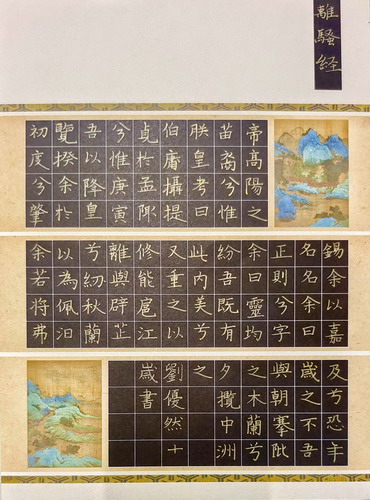 離騷経
帝高陽之
苗裔兮惟
朕皇考曰
伯庸攝提
貞於孟陬
兮惟庚寅
吾以降皇
覽揆余於
初度兮肇
錫余以嘉
名名余曰
正則兮字
余曰靈均
紛吾既有
此內美兮
又重之以
修能扈江
離與辟芷
兮紉秋蘭
以為佩汩
余若將弗
及兮恐年
歲之不吾
與朝搴阰
之木蘭兮
夕攬中洲
之
劉優然十
歲書